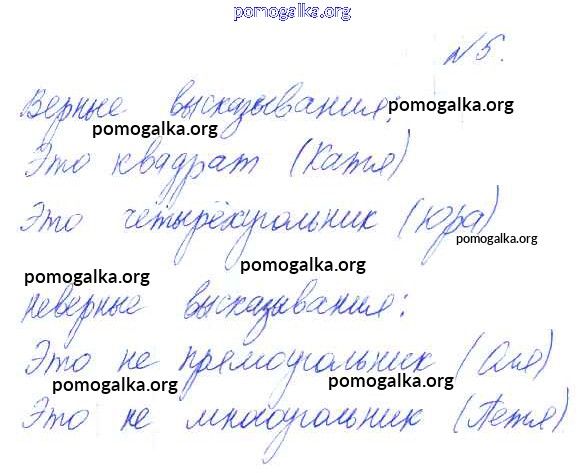 pomogalka.org
№5.
Верные высказывания:
pomogalka.org
pomogalka.org
Это квадрат (Катя)
Это четырёхугольник (Юра)
pomogalka.org
pomogalka.org
pomogalka.org
Неверные высказывания:
Это не прямоугольник (Оля)
pomogalka.org
pomogalka.org
Это не многоугольник (Петя)